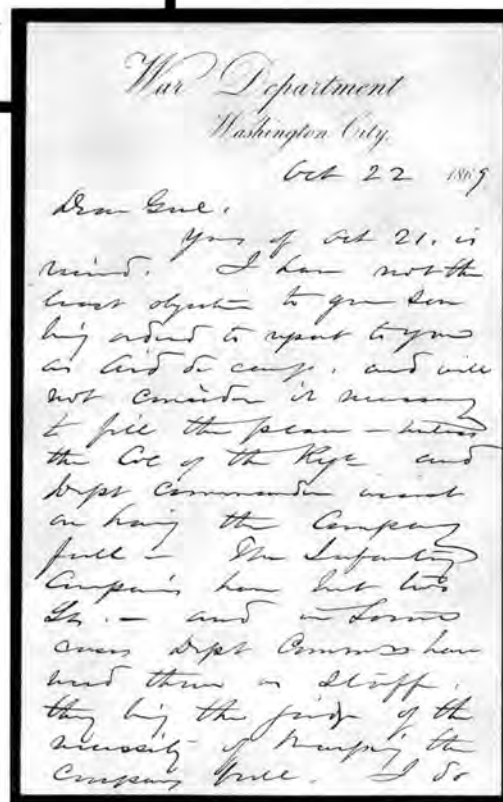 War Department
Washington City.
Oct 22 1869
Dear Genl.
Yours of Oct 21. is
received. I have not the
least objection to your son
being ordered to report to you
as Aid de camp. and will
not consider it necessary
to fill the place – unless
the Col of the Regt and
Dept Commander insist
on having the Company
full – The Infantry
Companies have but two
Lts. – and in some
cases Dept Commrs have
used them on Staff,
they being the judge of the
necessity of keeping the
Company full. I do